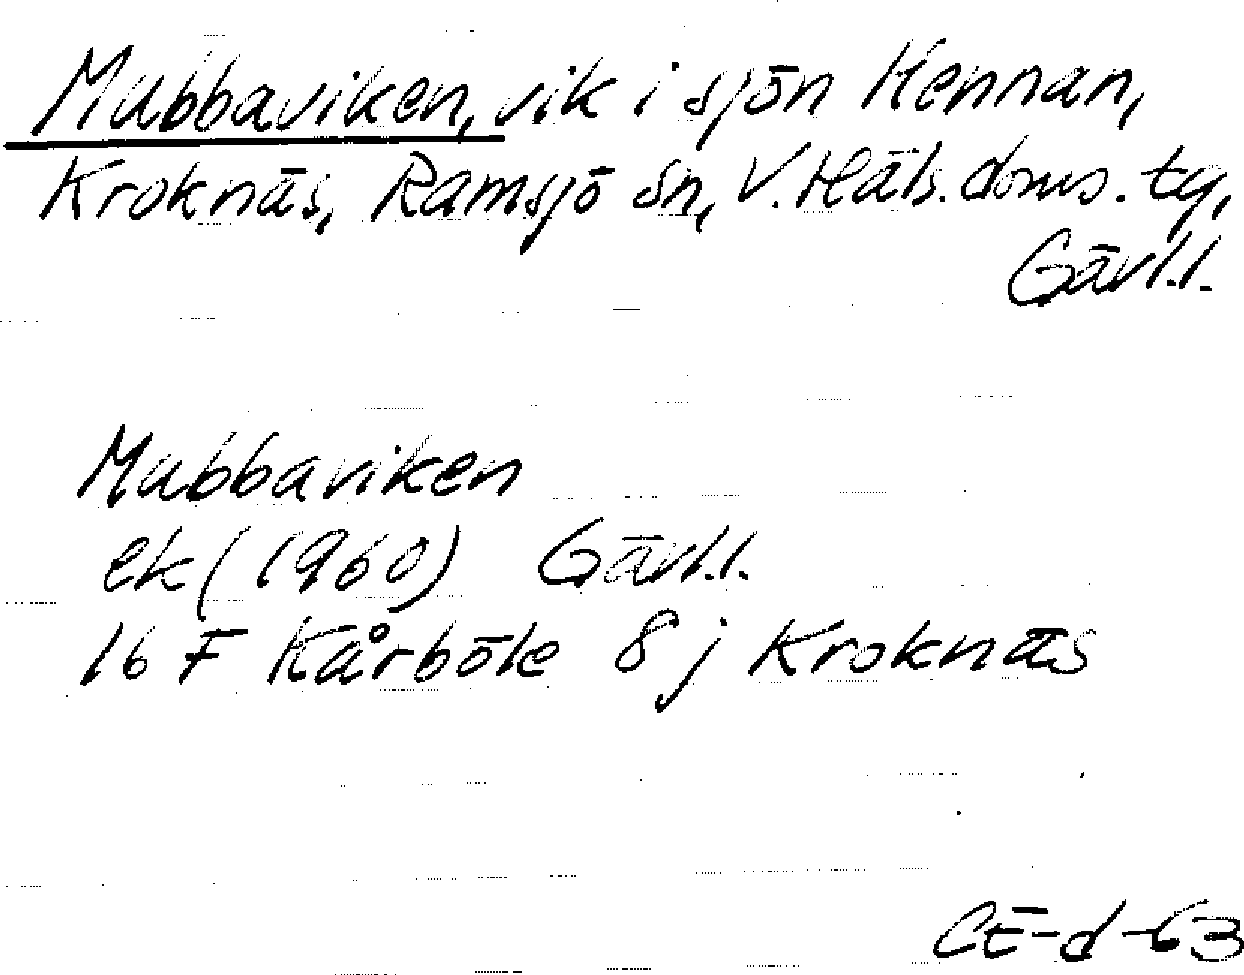 Mubbaviken, vik i sjön Hennan,
Kroknäs, Ramsjö sn, V. Häls. doms. tg,
Gävl.l.
Mubbaviken
ek (1960) Gävl.l.
16 F Kårböle 8 j Kroknäs
CE-d-63